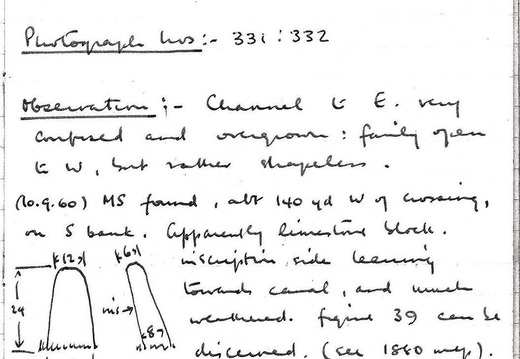 Photograph nos:- 331 : 332
Observation :- Channel to E. very
confused and overgrown : fairly open
to W, but rather shapeless.
(10.9.60) MS found, abt 140 yd W of crossing,
on S bank. Apparently limestone block.
inscription side leaning
towards canal, and much
weathered. figure 39 can be
discerned. (see 1880 map).
12
6
24
ins
8